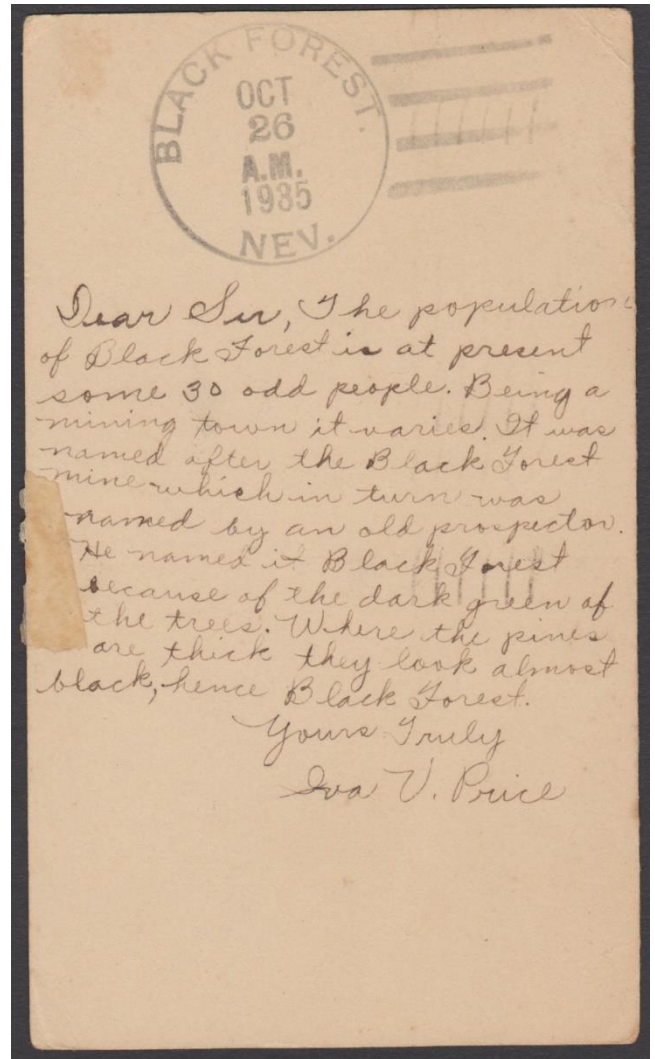 BLACK FOREST.
OCT
26
A.M.
1935
NEV.
Dear Sir, The population
of Black Forest is at present
some 30 odd people. Being a
mining town it varies. It was
named after the Black Forest
mine which in turn was
named by an old prospector.
He named it Black Forest
because of the dark green of
the trees. Where the pines
are thick they look almost
black, hence Black Forest.
Yours Truly
Iva V. Price